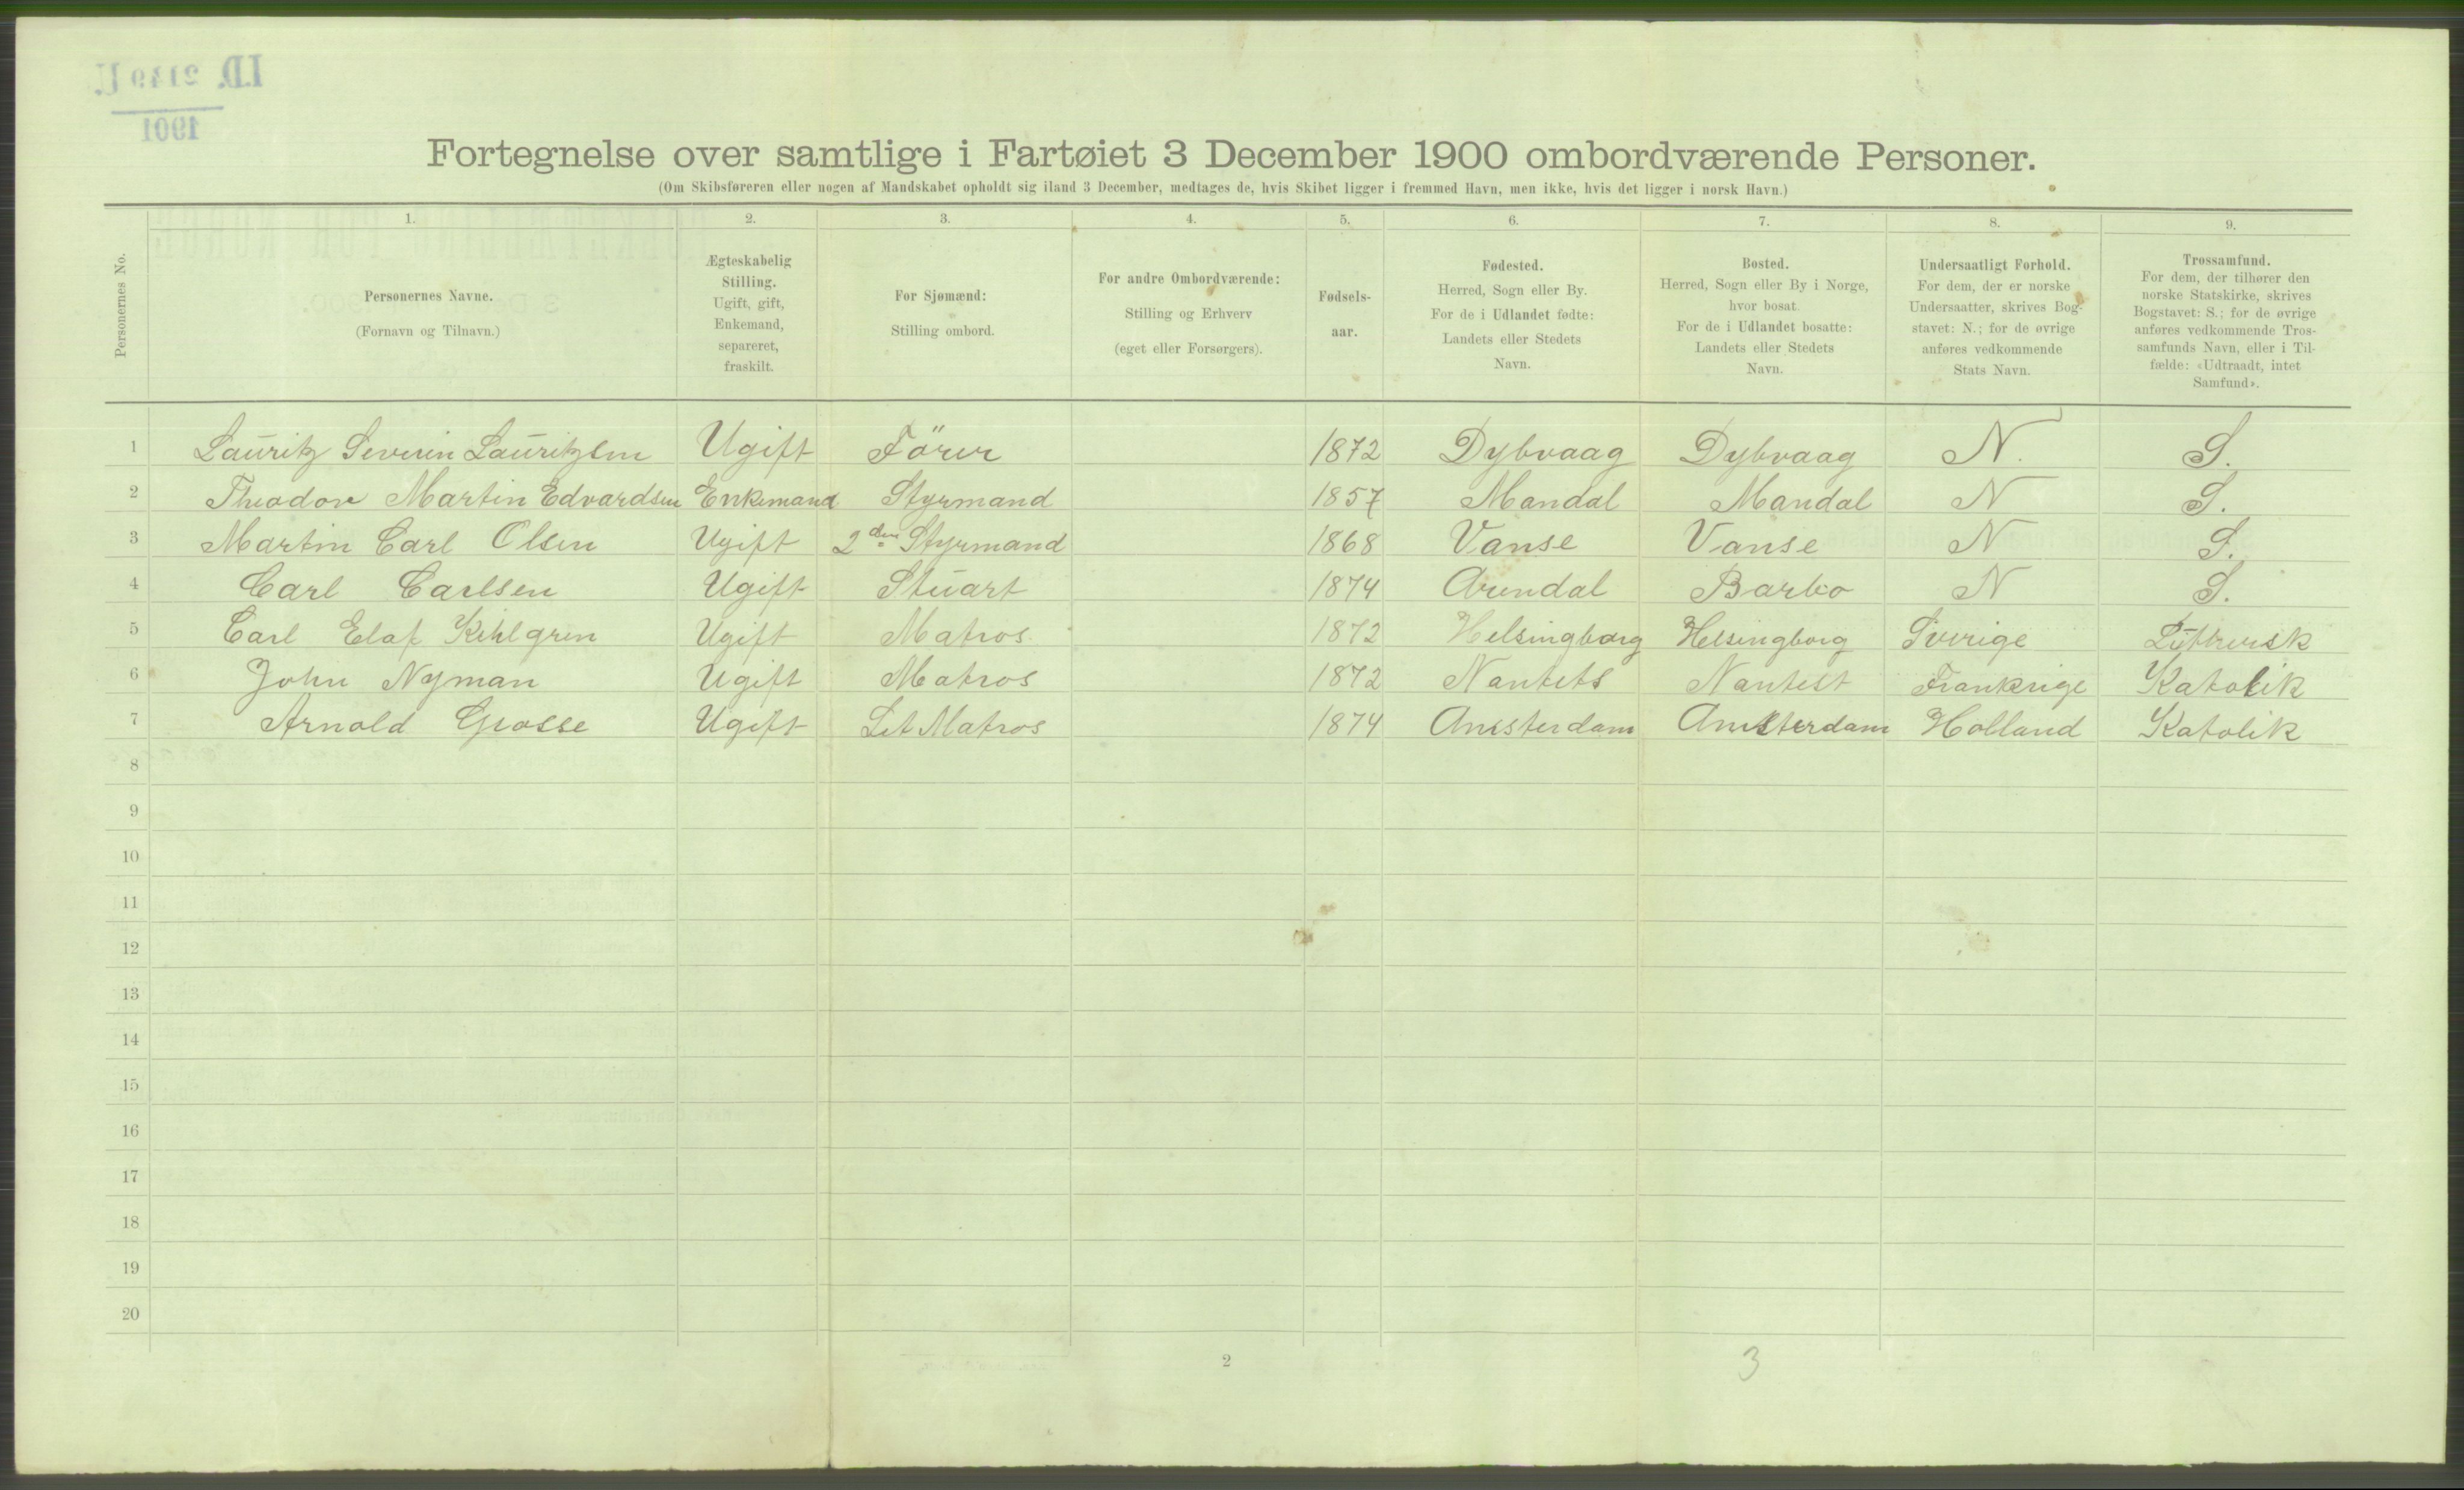 I.D. 2149 U.
1901
Fortegnelse over samtlige i Fartøiet 3 December 1900 ombordværende Personer.
(Om Skibsføreren eller nogen af Mandskabet opholdt sig iland 3 December, medtages de, hvis Skibet ligger i fremmed Havn, men ikke, hvis det ligger i norsk Havn.)
Personernes No.
1.
Personernes Navne.
(Fornavn og Tilnavn.)
2.
Ægteskabelig
Stilling.
Ugift, gift,
Enkemand,
separeret,
fraskilt.
3.
For Sjømænd:
Stilling ombord.
4.
For andre Ombordværende:
Stilling og Erhverv
(eget eller Forsørgers).
5.
Fødsels-
aar.
6.
Fødested.
Herred, Sogn eller By.
For de i Udlandet fødte:
Landets eller Stedets
Navn.
7.
Bosted.
Herred, Sogn eller By i Norge,
hvor bosat.
For de i Udlandet bosatte:
Landets eller Stedets
Navn.
8.
Undersaatligt Forhold.
For dem, der er norske
Undersaatter, skrives Bog-
stavet: N.; for de øvrige
anføres vedkommende
Stats Navn.
9.
Trossamfund.
For dem, der tilhører den
norske Statskirke, skrives
Bogstavet: S.; for de øvrige
anføres vedkommende Tros-
samfunds Navn, eller i Til-
fælde: «Udtraadt, intet
Samfund».
1 Lauritz Severin Lauritzen Ugift Förer 1872 Dybvaag Dybvaag N. S.
2 Theodor Martin Edvardsen Enkemand Styrmand 1857 Mandal Mandal N S.
3 Martin Carl Olsen Ugift 2den Styrmand 1868 Vanse Vanse N S.
4 Carl Carlsen Ugift Stuart 1874 Arendal Barbo N S.
5 Carl Elaf Kihlgren Ugift Matros 1872 Helsingborg Helsingborg Sverige Luthersk
6 John Nyman Ugift Matros 1872 Nantets Nantest Frankrige Katolik
7 Arnold Grosse Ugift Let Matros 1874 Amsterdam Amsterdam Holland Katolik
8
9
10
11
12
13
14
15
16
17
18
19
20
2
3